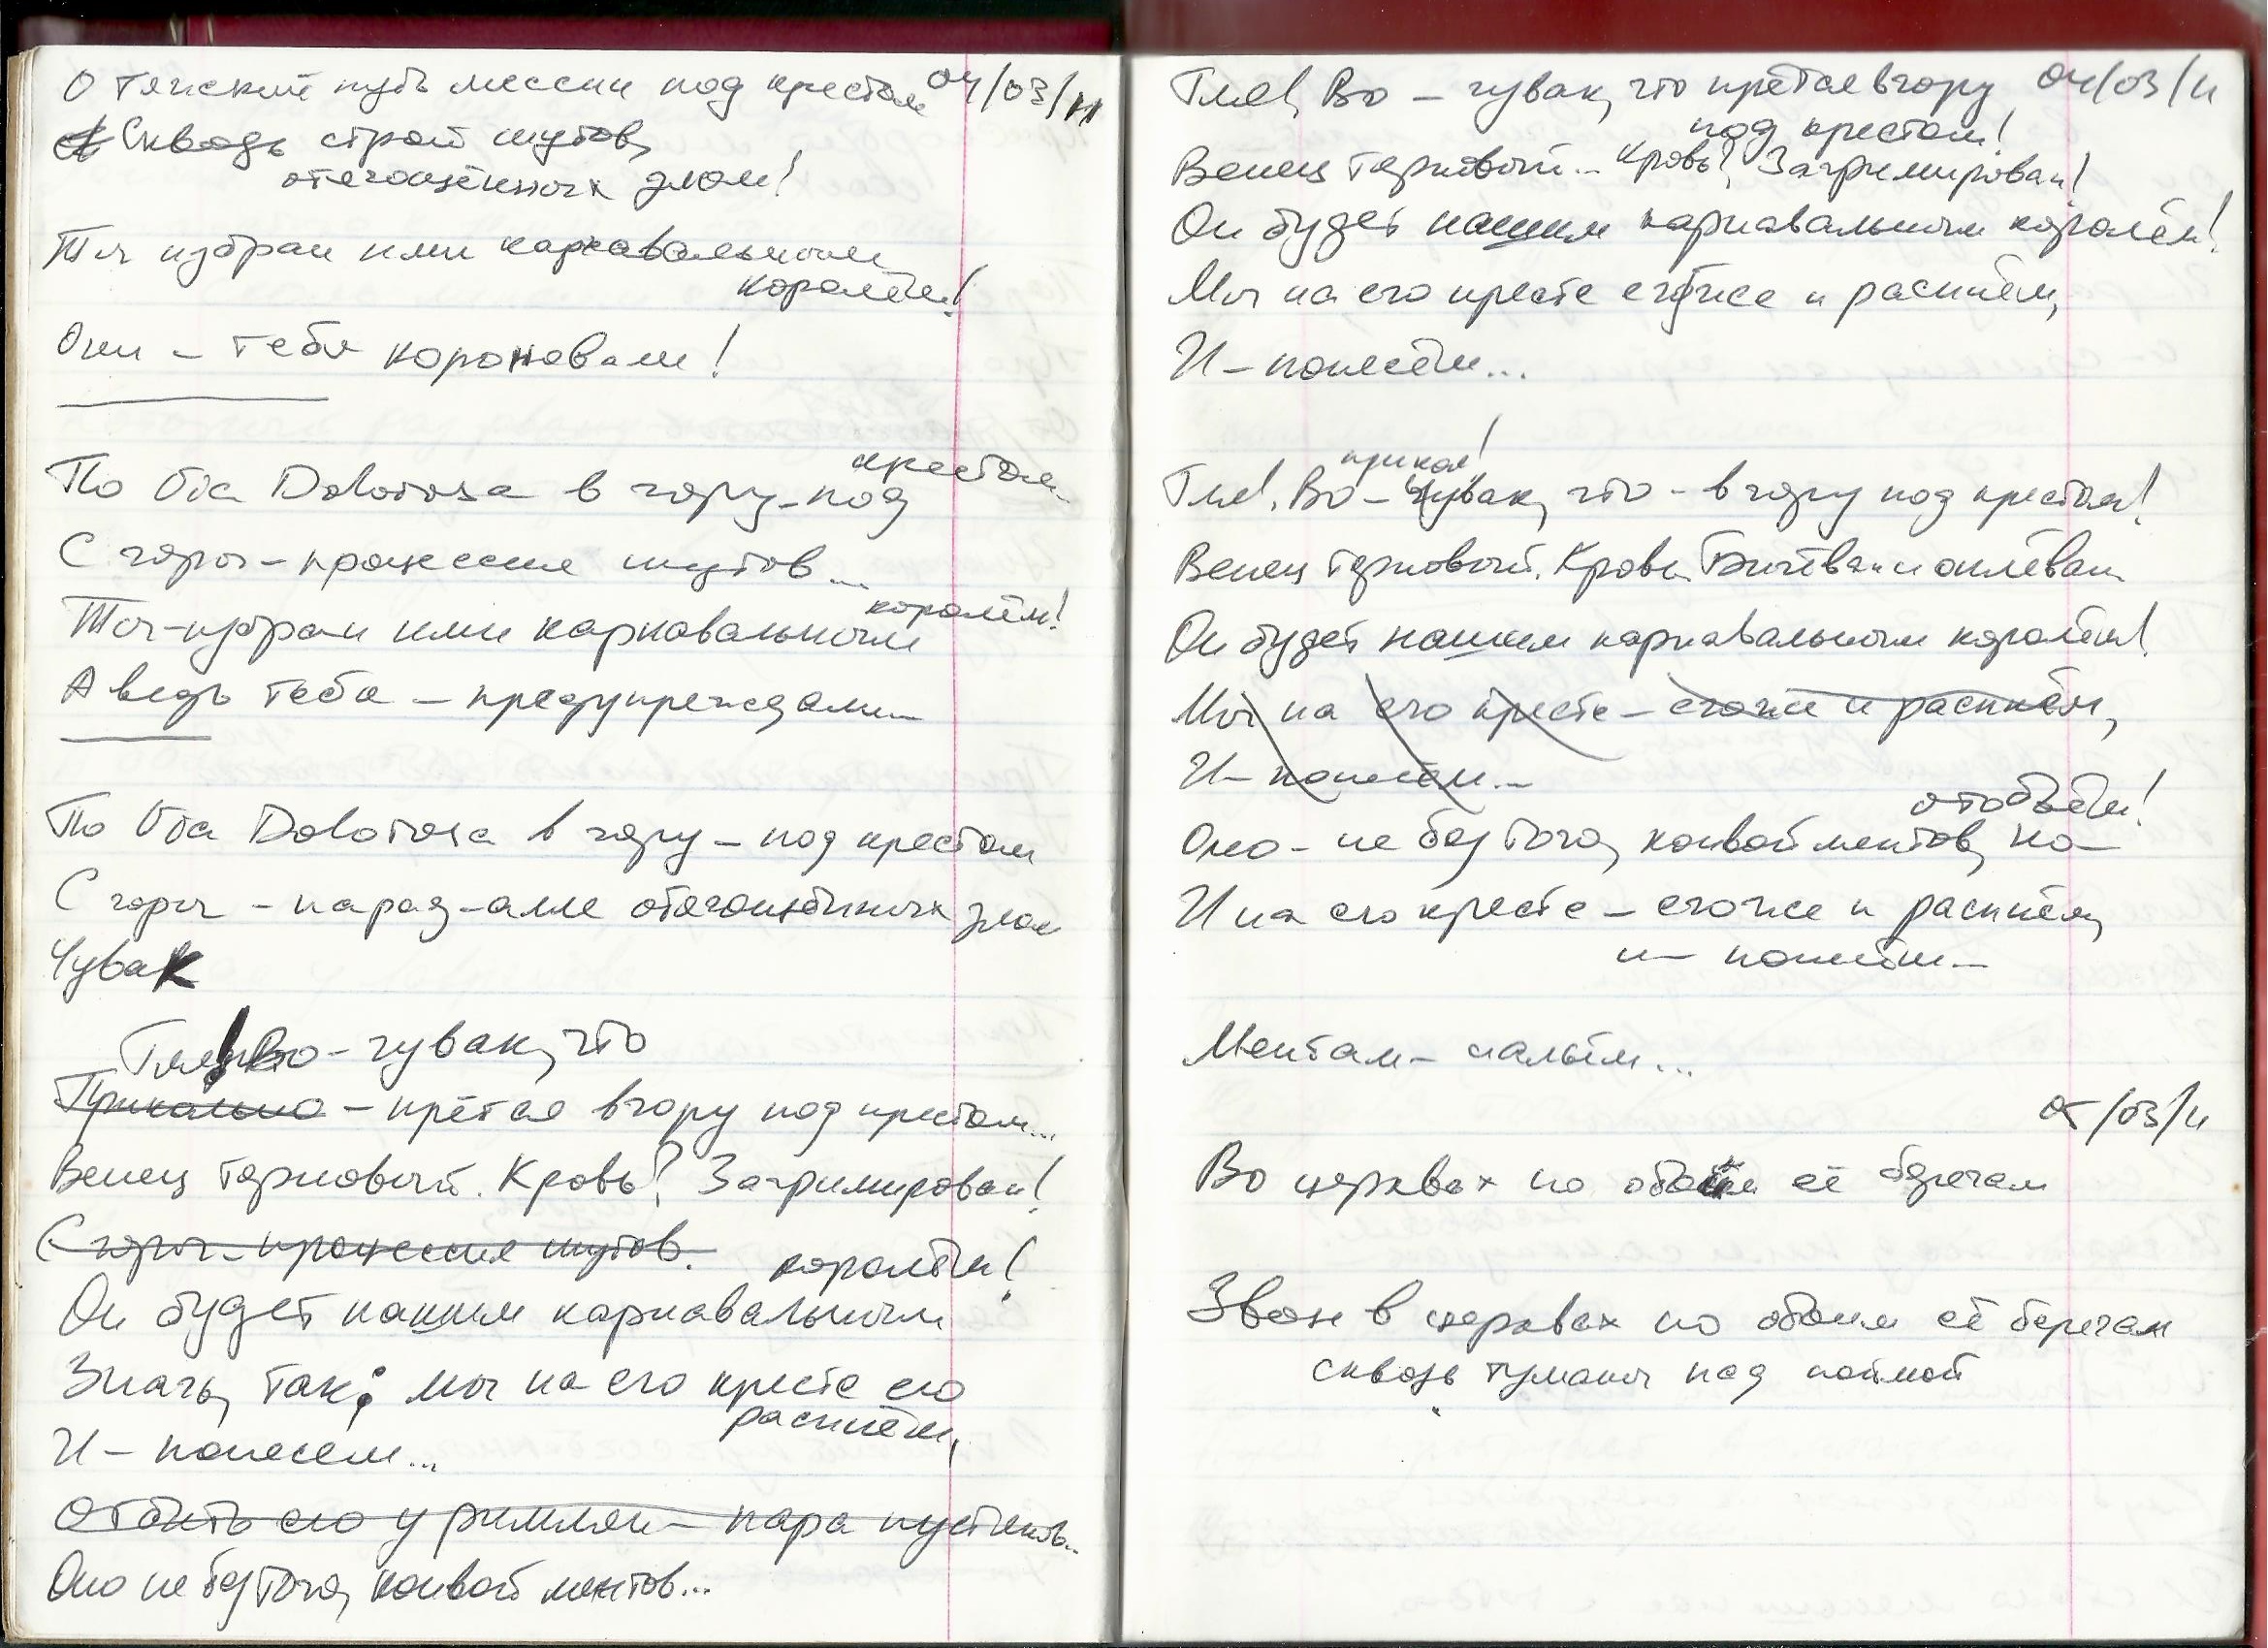 О тяжский путь мессии под крестом 04/03/11
Сквозь строй шутов,
отягощённых злом!
Ты избран ими карнавальным
королём!
Они – тебя короновали!
По Via Dolorosa в гору – под крестом
С горы – процессия шутов...
Ты – избран ими карнавальным королём!
А ведь тебя – предупреждали...
По Via Dolorosa в гору – под крестом
С горы – парад-алле отягощённых злом
Чувак
Гля! Во – чувак, что
Прикольно – прётся в гору под крестом...
Венец терновый. Кровь? Загримирован!
С горы – процессия шутов.
королём!
Он будет нашим карнавальным
Значь, так: мы на его кресте его
распнём,
И – понесем...
Отбить его у римлян – пара пустяков...
Оно не без того, конвой ментов...
Гля!, Во – чувак, что прётся в гору 04/03/11
под крестом!
Венец терновый... Кровь? Загримирован!
Он будет нашим карнавальным королём!
Мы на его кресте его же и распнём,
И – понесём...
прикол!
Гля!, Во – чувак, что – в гору под крестом!
Венец терновый. Кровь. Бичёван и оплёван
Он будет нашим карнавальным королём!
Мы на его кресте – его же и распнём,
И – понесём...
отобьём!
Оно – не без того, конвой ментов, но –
И на его кресте – его же и распнём,
и – понесём...
Ментам – нальём...
05/03/11
Во церквах по обоим её берегам
Звон в церквах по обоим её берегам
сквозь туманы над поймой